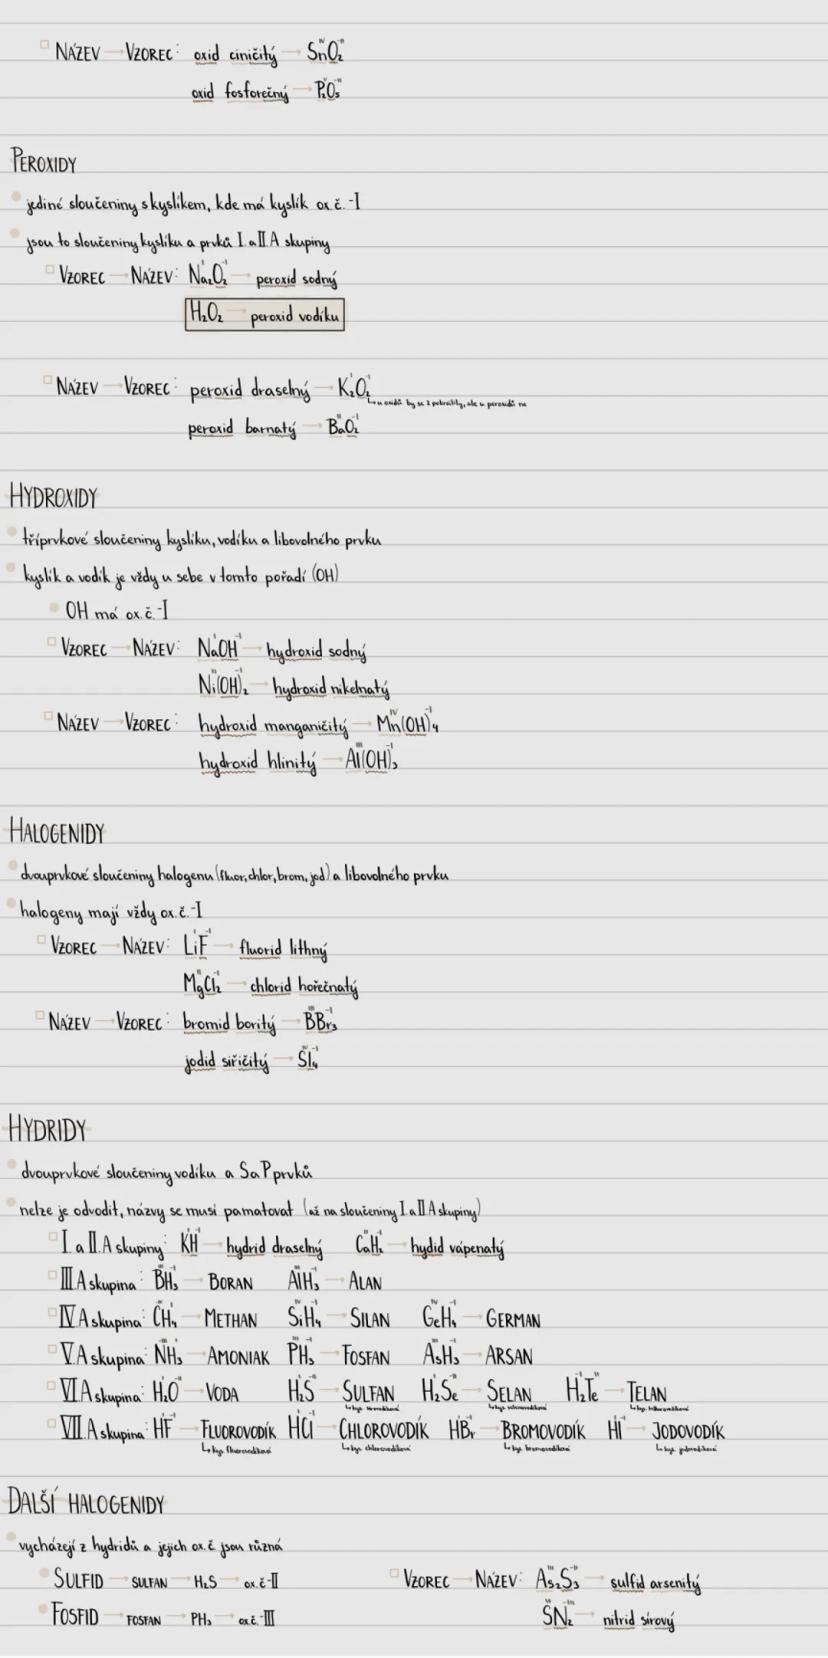 NÁZEV → VZOREC: oxid ciničitý → SnO₂
oxid fosforečný → P₂O₅
PEROXIDY
jediné sloučeniny s kyslíkem, kde má kyslík ox.č. -I
jsou to sloučeniny kyslíku a prvků I. a II.A skupiny
VZOREC → NÁZEV: Na₂O₂ → peroxid sodný
H₂O₂ → peroxid vodíku
NÁZEV → VZOREC: peroxid draselný → K₂O₂
↳ u oxidů by se 2 pokrátily, ale u peroxidů ne
peroxid barnatý → BaO₂
HYDROXIDY
tříprvkové sloučeniny kyslíku, vodíku a libovolného prvku
kyslík a vodík je vždy u sebe v tomto pořadí (OH)
OH má ox.č. -I
VZOREC → NÁZEV: NaOH → hydroxid sodný
Ni(OH)₂ → hydroxid nikelnatý
NÁZEV → VZOREC: hydroxid manganičitý → Mn(OH)₄
hydroxid hlinitý → Al(OH)₃
HALOGENIDY
dvouprvkové sloučeniny halogenu (fluor, chlor, brom, jod) a libovolného prvku
halogeny mají vždy ox.č. -I
VZOREC → NÁZEV: LiF → fluorid lithný
MgCl₂ → chlorid hořečnatý
NÁZEV → VZOREC: bromid boritý → BBr₃
jodid siřičitý → SI₄
HYDRIDY
dvouprvkové sloučeniny vodíku a S a P prvků
nelze je odvodit, názvy se musí pamatovat (až na sloučeniny I. a II.A skupiny)
I. a II. A skupiny: KH → hydrid draselný CaH₂ → hydid vápenatý
III.A skupina: BH₃ → BORAN AlH₃ → ALAN
IV.A skupina: CH₄ → METHAN SiH₄ → SILAN GeH₄ → GERMAN
V.A skupina: NH₃ → AMONIAK PH₃ → FOSFAN AsH₃ → ARSAN
VI.A skupina: H₂O → VODA H₂S → SULFAN H₂Se → SELAN H₂Te → TELAN
VII.A skupina: HF → FLUOROVODÍK HCl → CHLOROVODÍK HBr → BROMOVODÍK HI → JODOVODÍK
↳ kys. fluorovodíková ↳ kys. chlorovodíková ↳ kys. bromovodíková ↳ kys. jodovodíková
DALŠÍ HALOGENIDY
vycházejí z hydridů a jejich ox.č. jsou různá
SULFID → SULFAN → H₂S → ox.č. -II VZOREC → NÁZEV: As₂S₃ → sulfid arsenitý
FOSFID → FOSFAN → PH₃ → ox.č. -III SN₂ → nitrid sírový